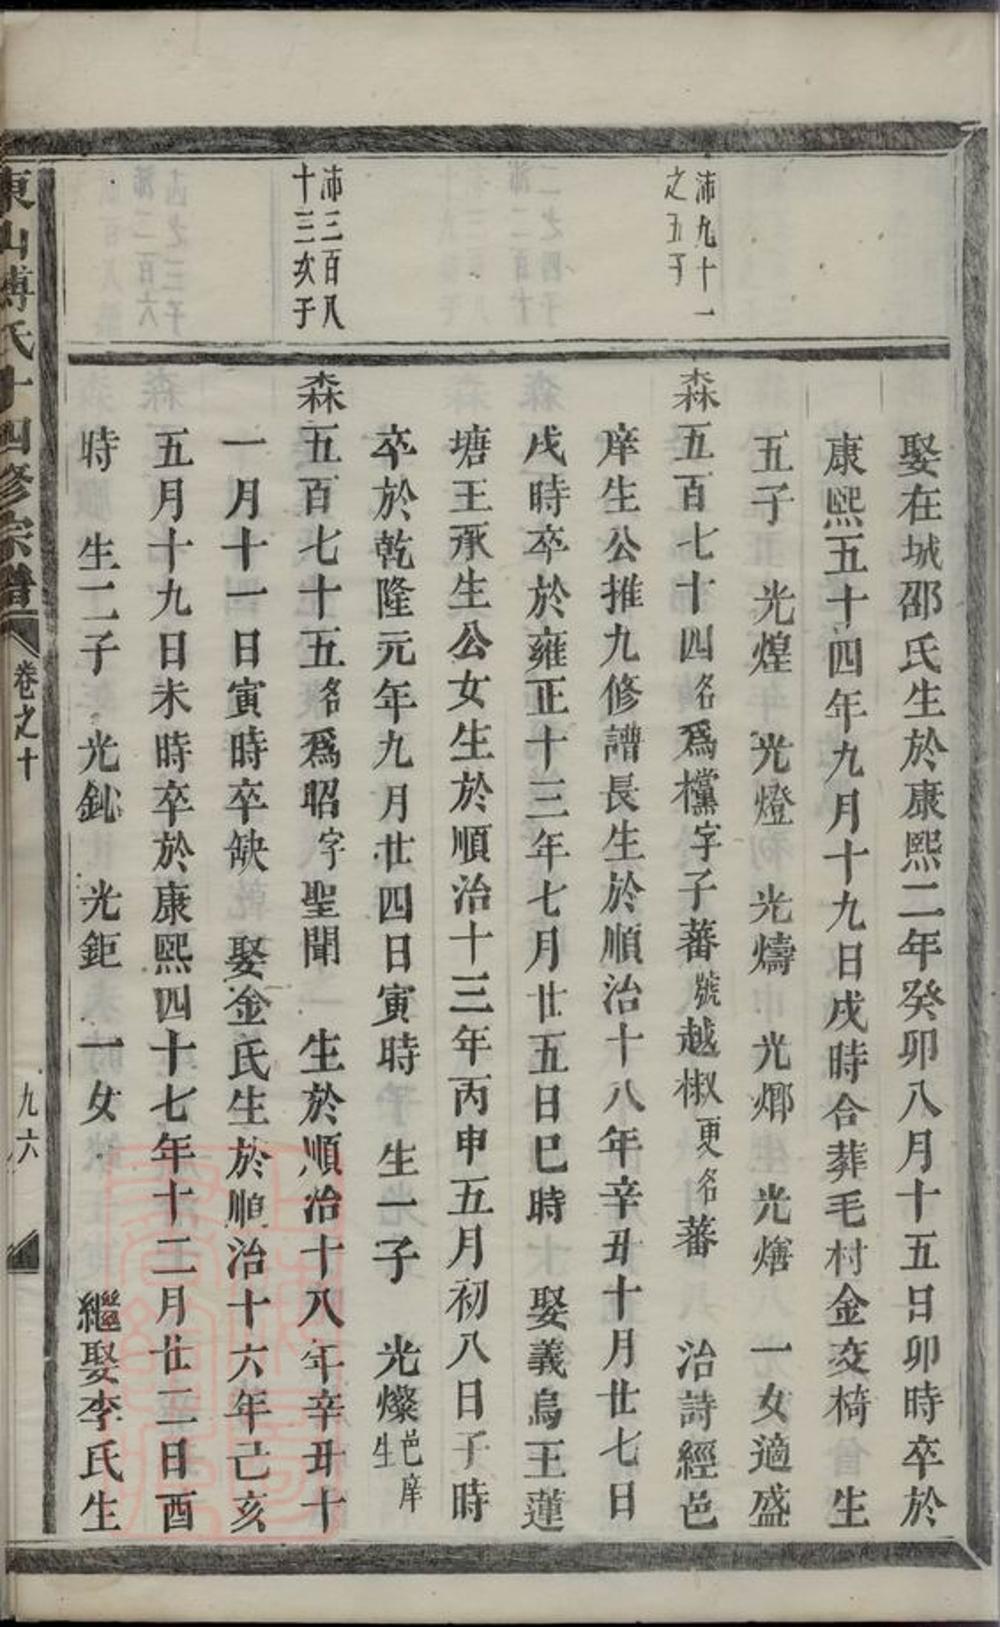 娶在城邵氏生於康熙二年癸卯八月十五日卯時卒於
康熙五十四年九月十九日戌時合葬毛村金交椅　生
五子　光煌　光燈　光燽　光㷯　光㷿　一女適盛
沛九十一
之五子
森五百七十四名爲欓字子蕃號越椒更名蕃　治詩經邑
庠生公推九修譜長生於順治十八年辛丑十月廿七日
戌時卒於雍正十三年七月廿五日巳時　娶義烏王蓮
塘王承生公女生於順治十三年丙申五月初八日子時
卒於乾隆元年九月廿四日寅時　生一子　光燦邑庠生
沛三百八
十三次子
森五百七十五名爲昭字聖聞　生於順治十八年辛丑十
一月十一日寅時卒缺　娶金氏生於順治十六年己亥
五月十九日未時卒於康熙四十七年十二月廿二日酉
時　生二子　光釓　光鉅　一女　繼娶李氏生
東山傅氏十四修宗譜
卷之十
九六